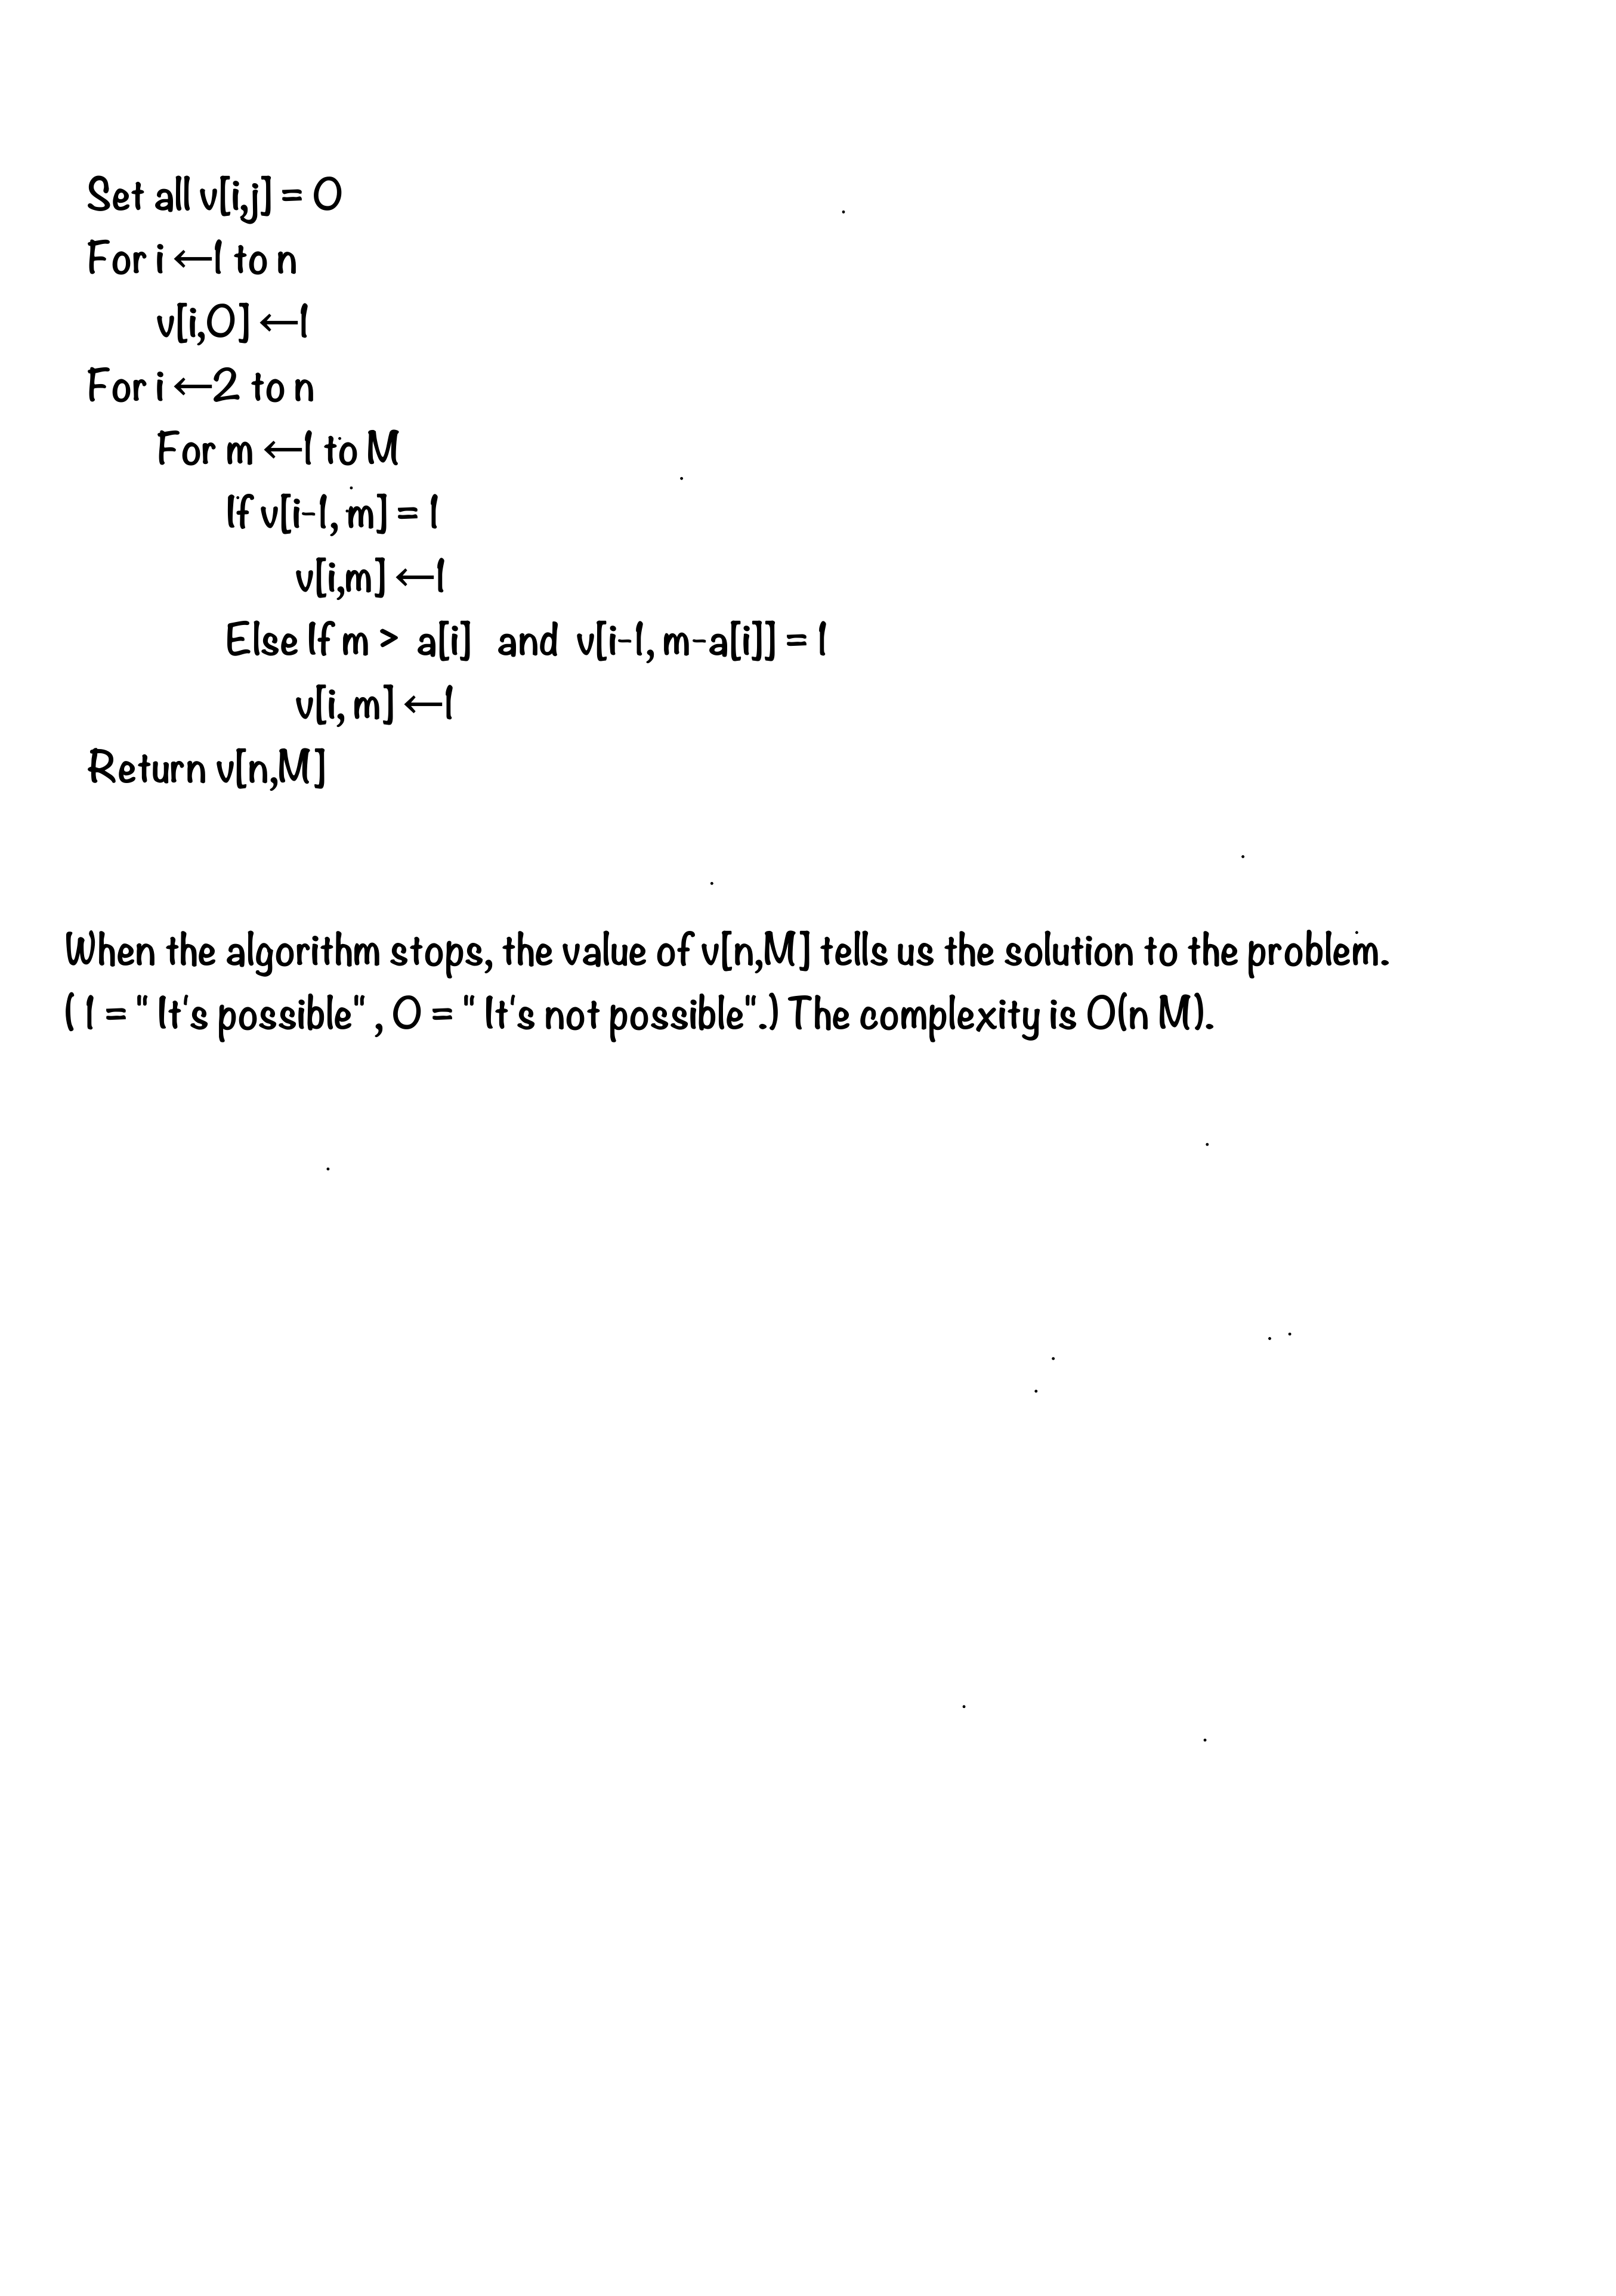 Set all v[i,j] = 0
For i ←1 to n
v[i,0] ←1
For i ←2 to n
For m ←1 to M
If v[i-1, m] = 1
v[i,m] ←1
Else If m > a[i] and v[i-1, m-a[i]] = 1
v[i, m] ←1
Return v[n,M]
When the algorithm stops, the value of v[n,M] tells us the solution to the problem.
( 1 = " It's possible" , 0 = " It's not possible".) The complexity is O(n M).